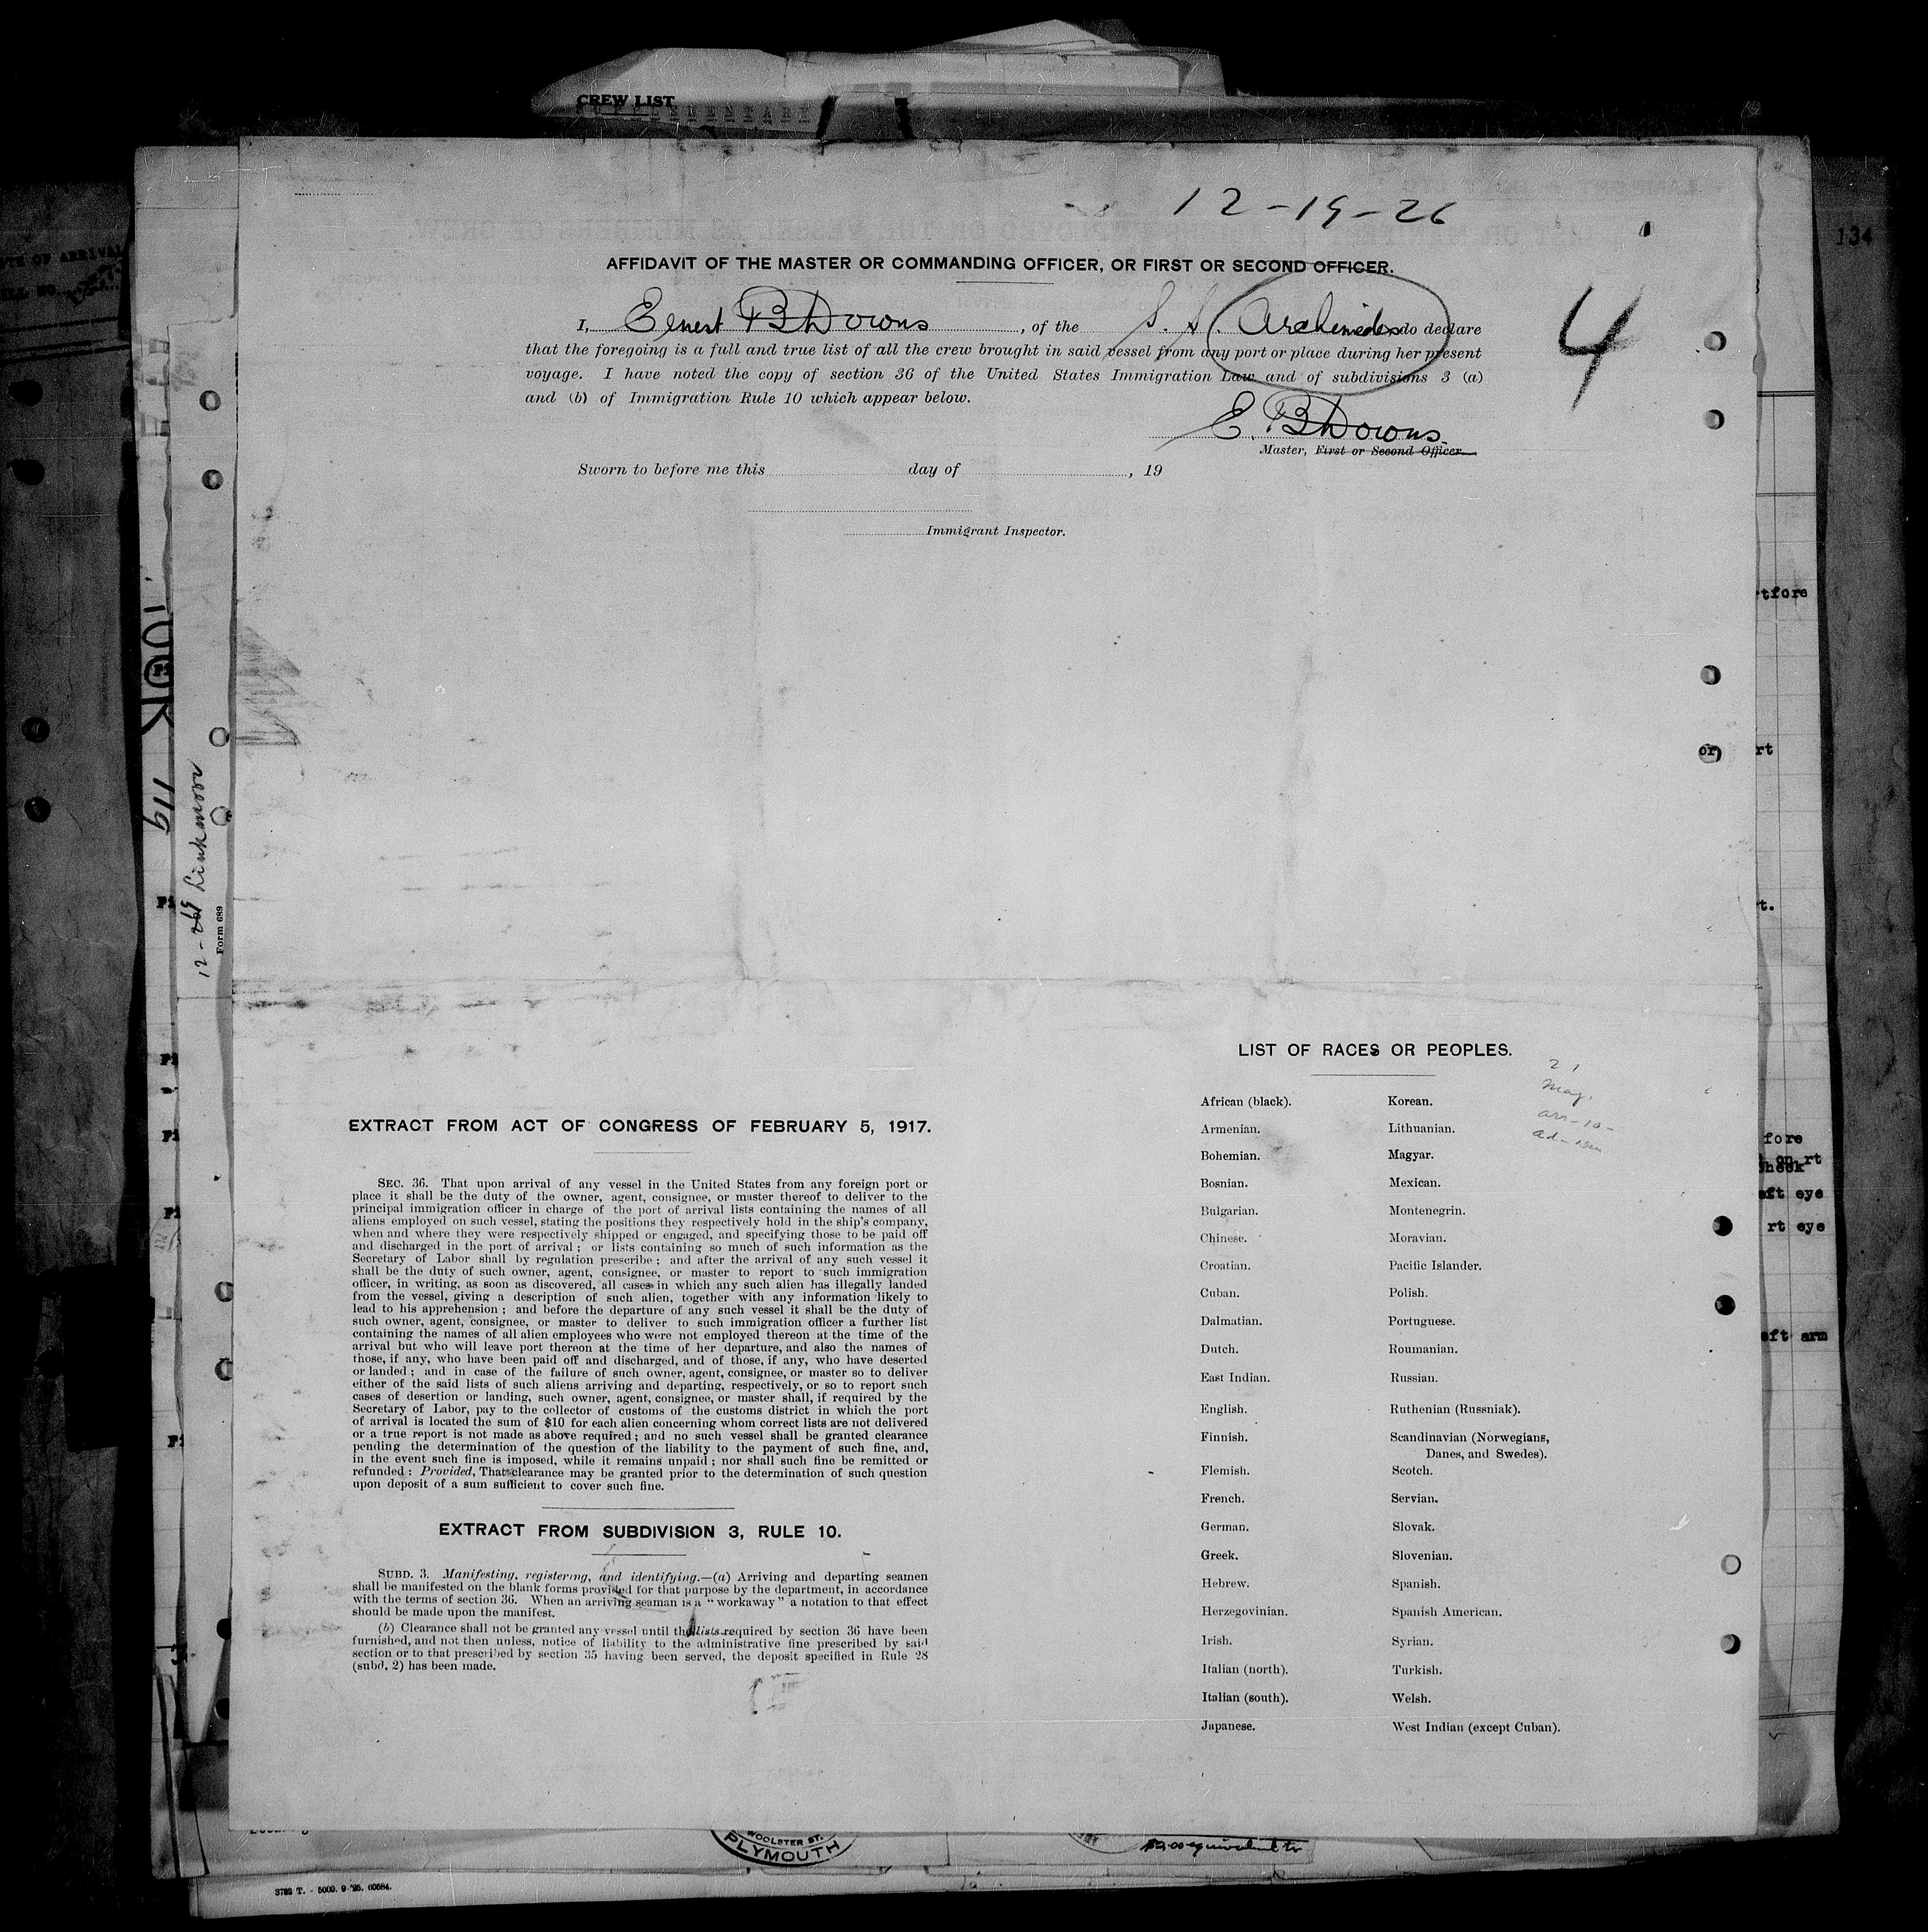 CREW LIST
SUPPLEMENTARY
12-19-26
134
AFFIDAVIT OF THE MASTER OR COMMANDING OFFICER, OR FIRST OR SECOND OFFICER.
4
I, Ernest B Downs, of the S. S. Archimedes do declare
that the foregoing is a full and true list of all the crew brought in said vessel from any port or place during her present
voyage. I have noted the copy of section 36 of the United States Immigration Law and of subdivisions 3 (a)
and (b) of Immigration Rule 10 which appear below.
E. B Downs.
Master, First or Second Officer.
Sworn to before me this day of , 19
Immigrant Inspector.
12-19 Linkmoor
Form 689
EXTRACT FROM ACT OF CONGRESS OF FEBRUARY 5, 1917.
SEC. 36. That upon arrival of any vessel in the United States from any foreign port or
place it shall be the duty of the owner, agent, consignee, or master thereof to deliver to the
principal immigration officer in charge of the port of arrival lists containing the names of all
aliens employed on such vessel, stating the positions they respectively hold in the ship's company,
when and where they were respectively shipped or engaged, and specifying those to be paid off
and discharged in the port of arrival; or lists containing so much of such information as the
Secretary of Labor shall by regulation prescribe; and after the arrival of any such vessel it
shall be the duty of such owner, agent, consignee, or master to report to such immigration
officer, in writing, as soon as discovered, all cases in which any such alien has illegally landed
from the vessel, giving a description of such alien, together with any information likely to
lead to his apprehension; and before the departure of any such vessel it shall be the duty of
such owner, agent, consignee, or master to deliver to such immigration officer a further list
containing the names of all alien employees who were not employed thereon at the time of the
arrival but who will leave port thereon at the time of her departure, and also the names of
those, if any, who have been paid off and discharged, and of those, if any, who have deserted
or landed; and in case of the failure of such owner, agent, consignee, or master so to deliver
either of the said lists of such aliens arriving and departing, respectively, or so to report such
cases of desertion or landing, such owner, agent, consignee, or master shall, if required by the
Secretary of Labor, pay to the collector of customs of the customs district in which the port
of arrival is located the sum of $10 for each alien concerning whom correct lists are not delivered
or a true report is not made as above required; and no such vessel shall be granted clearance
pending the determination of the question of the liability to the payment of such fine, and,
in the event such fine is imposed, while it remains unpaid; nor shall such fine be remitted or
refunded: Provided, That clearance may be granted prior to the determination of such question
upon deposit of a sum sufficient to cover such fine.
EXTRACT FROM SUBDIVISION 3, RULE 10.
SUBD. 3. Manifesting, registering, and identifying.—(a) Arriving and departing seamen
shall be manifested on the blank forms provided for that purpose by the department, in accordance
with the terms of section 36. When an arriving seaman is a "workaway" a notation to that effect
should be made upon the manifest.
(b) Clearance shall not be granted any vessel until the lists required by section 36 have been
furnished, and not then unless, notice of liability to the administrative fine prescribed by said
section or to that prescribed by section 35 having been served, the deposit specified in Rule 28
(subd. 2) has been made.
LIST OF RACES OR PEOPLES.
African (black).
Armenian.
Bohemian.
Bosnian.
Bulgarian.
Chinese.
Croatian.
Cuban.
Dalmatian.
Dutch.
East Indian.
English.
Finnish.
Flemish.
French.
German.
Greek.
Hebrew.
Herzegovinian.
Irish.
Italian (north).
Italian (south).
Japanese.
Korean.
Lithuanian.
Magyar.
Mexican.
Montenegrin.
Moravian.
Pacific Islander.
Polish.
Portuguese.
Roumanian.
Russian.
Ruthenian (Russniak).
Scandinavian (Norwegians,
Danes, and Swedes).
Scotch.
Servian.
Slovak.
Slovenian.
Spanish.
Spanish American.
Syrian.
Turkish.
Welsh.
West Indian (except Cuban).
21
rt
fore
on rt
cheek
eft eye
rt eye
eft arm
WOOLSTER ST.
PLYMOUTH
$2.00 equivalent to
3792 T. - 5000. 9-'25. 60584.